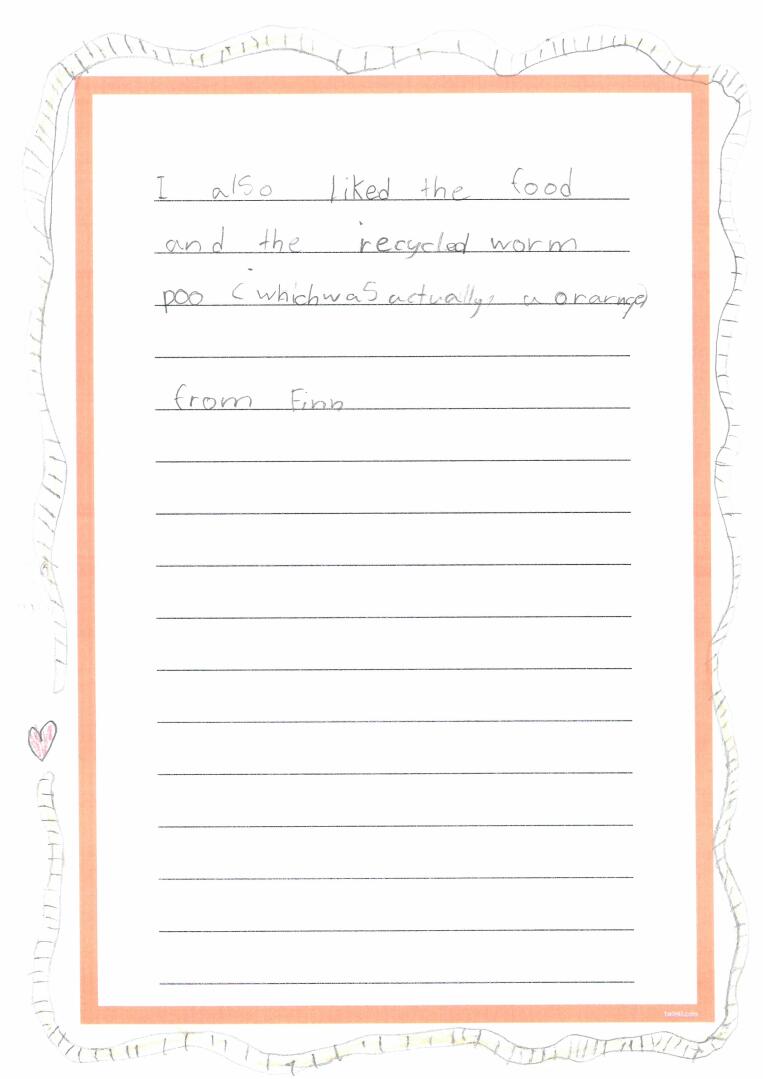 I also liked the food
and the recycled worm
poo (which was actually, a orarnge)
from Finn
twinkl.com